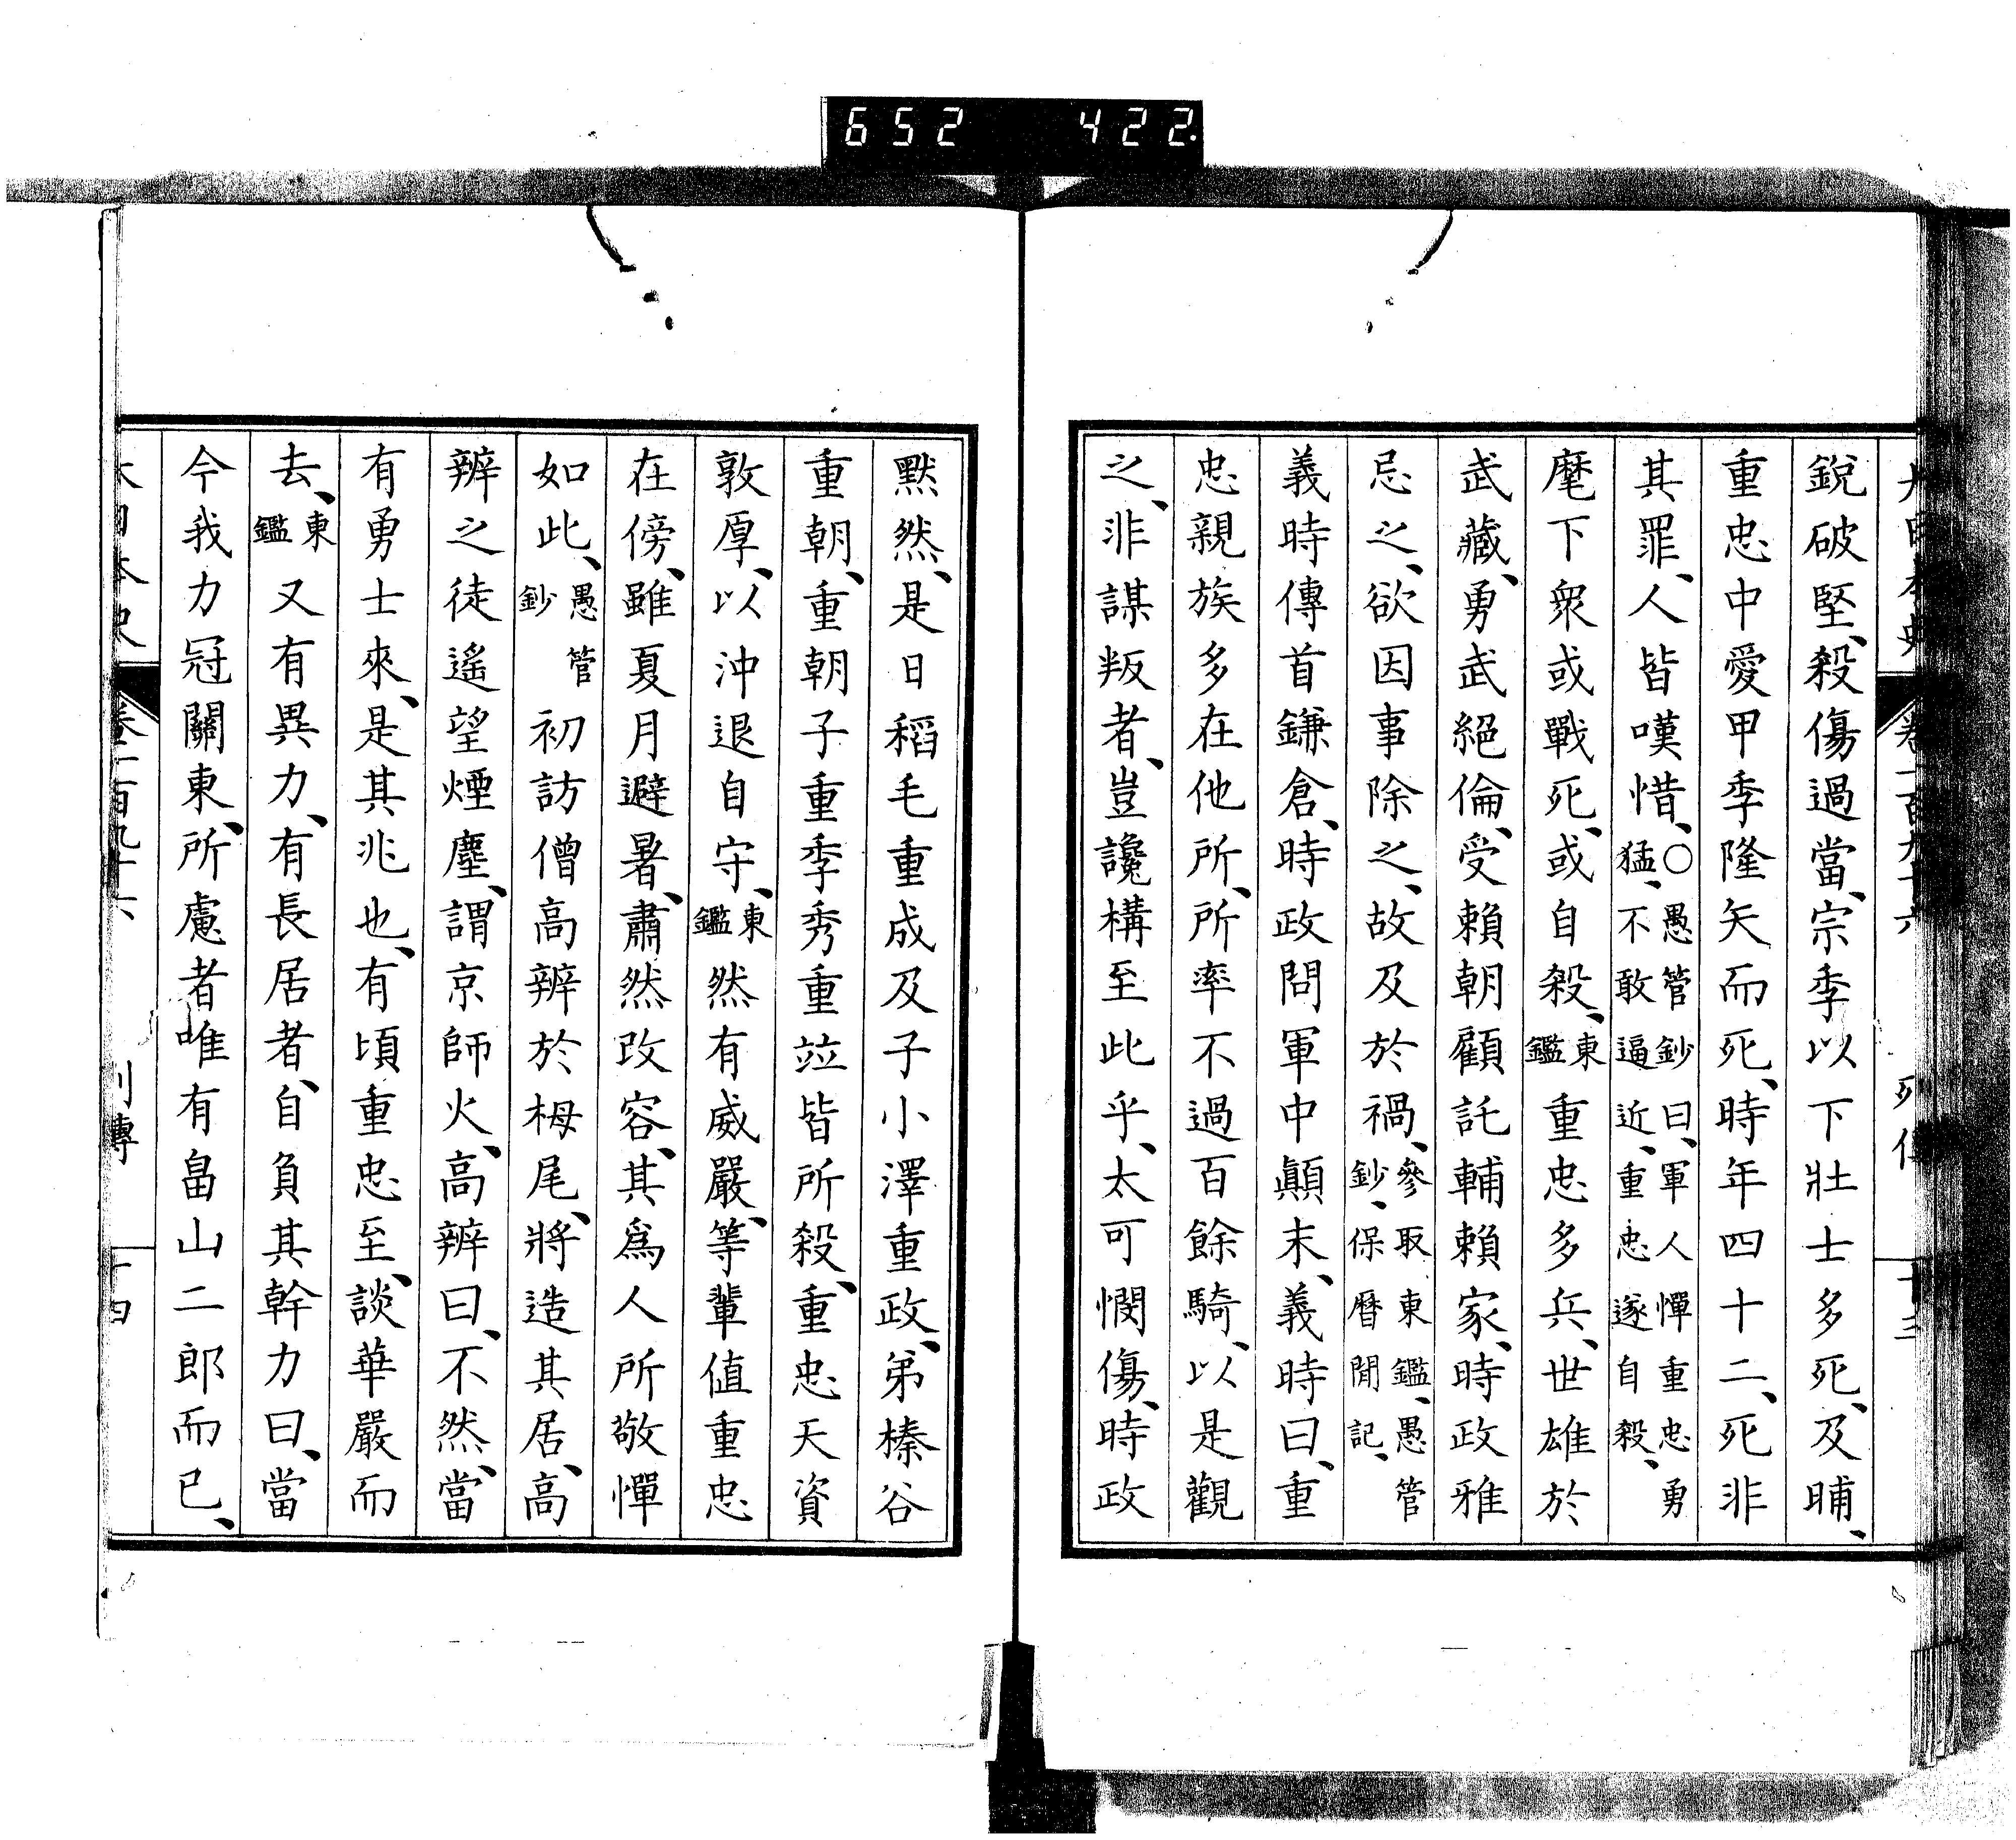 652 422
銳破堅、殺傷過當、宗季以下壯士多死、及晡、
重忠中愛甲季隆矢而死、時年四十二、死非
其罪、人皆嘆惜、○愚管鈔曰、軍人憚重忠勇猛、不敢逼近、重忠遂自殺、
麾下衆或戰死、或自殺、東鑑重忠多兵、世雄於
武藏、勇武絕倫、受賴朝顧託輔賴家、時政雅
忌之、欲因事除之、故及於禍、參取東鑑、愚管鈔、保曆閒記、
義時傳首鎌倉、時政問軍中顛末、義時曰、重
忠親族多在他所、所率不過百餘騎、以是觀
之、非謀叛者、豈讒構至此乎、太可憫傷、時政
默然、是日稻毛重成及子小澤重政、弟榛谷
重朝、重朝子重季秀重竝皆所殺、重忠天資
敦厚、以沖退自守、東鑑然有威嚴、等輩値重忠
在傍、雖夏月避暑、肅然改容、其爲人所敬憚
如此、愚管鈔初訪僧高辨於栂尾、將造其居、高
辨之徒遙望煙塵、謂京師火、高辨曰、不然、當
有勇士來、是其兆也、有頃重忠至、談華嚴而
去、東鑑又有異力、有長居者、自負其幹力曰、當
今我力冠關東、所慮者唯有畠山二郎而已、